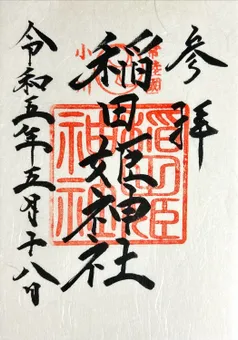 参拝
常陸國
小川
稲田姫神社
稲田姫
神社
令和五年五月十八日